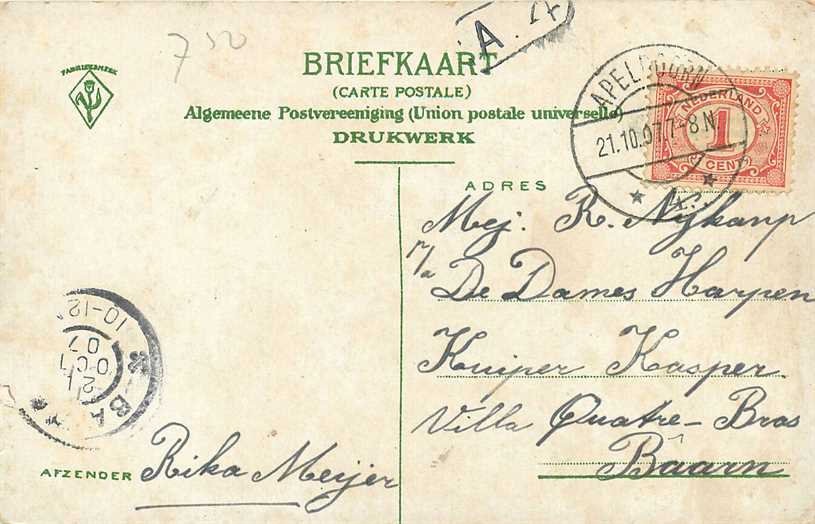 750
A.
FABRIEKSMERK
BRIEFKAART
(CARTE POSTALE)
Algemeene Postvereeniging (Union postale universelle)
DRUKWERK
APELDOORN
21.10.07 7-8 N
NEDERLAND
1
CENT
ADRES
Mej: R. Nijkamp
p/a
De Dames Harpen
Kuiper Kasper
Villa Quatre-Bras
Baarn
10-12
21
OCT
07
BA
AFZENDER Rika Meijer